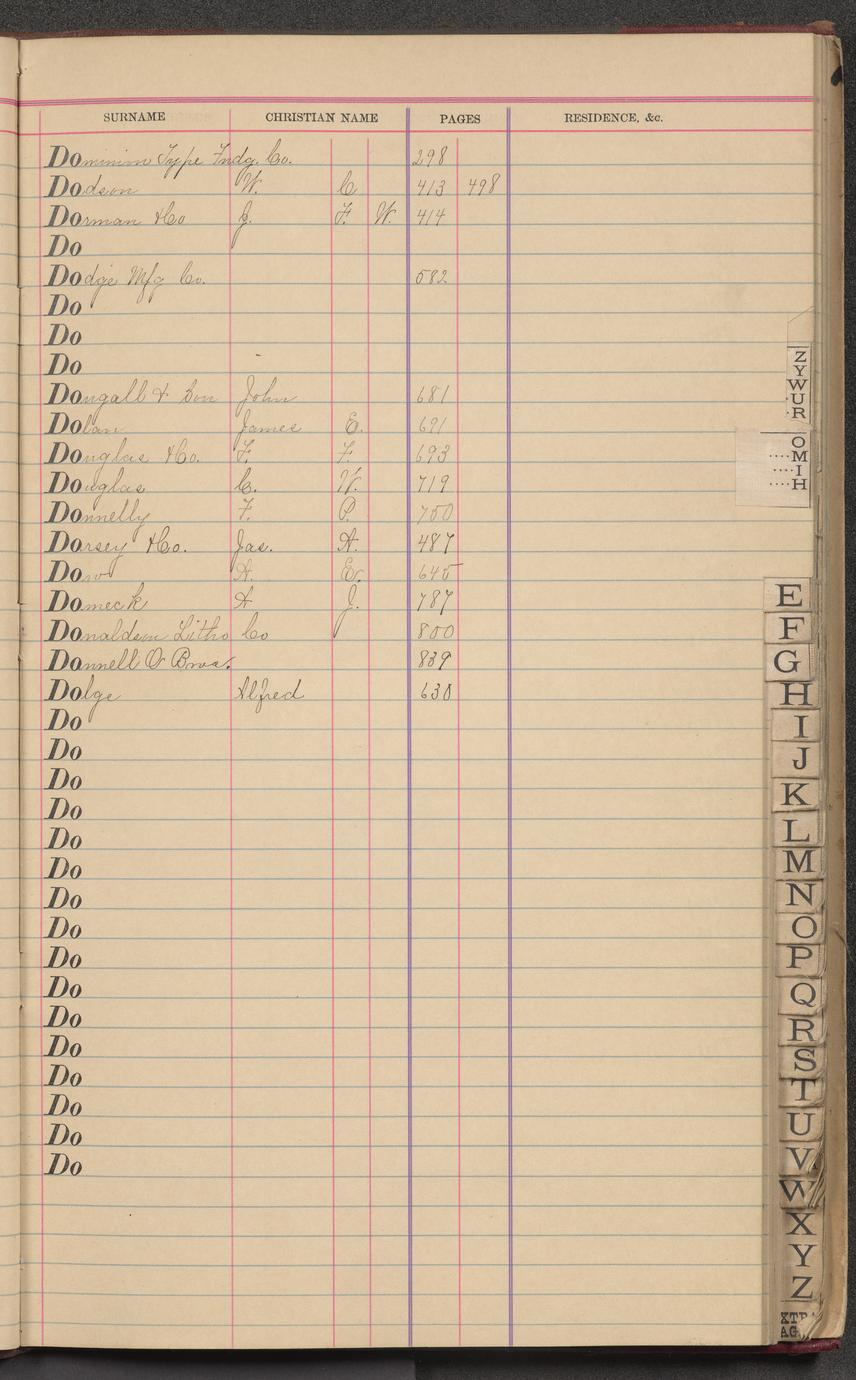 SURNAME CHRISTIAN NAME PAGES RESIDENCE, &c.
Dominion Type Fndg. Co. 298
Dodson W. C 413 498
Dorman & Co J. F. W. 414
Do
Dodge Mfg Co. 582
Do
Do
Do
Dougall & Son John 681
Dolan James E. 691
Douglas & Co. F. F. 693
Douglas C. W. 719
Donnelly F. P. 750
Dorsey & Co. Jas. A. 487
Dow A. E. 645
Domeck A J. 787
Donaldson Litho Co 800
Donnell O Bros. 839
Dolge Alfred 630
Do
Do
Do
Do
Do
Do
Do
Do
Do
Do
Do
Do
Do
Do
Do
Do
Z
Y
W
U
R
O
M
I
H
E
F
G
H
I
J
K
L
M
N
O
P
Q
R
S
T
U
V
W
X
Y
Z